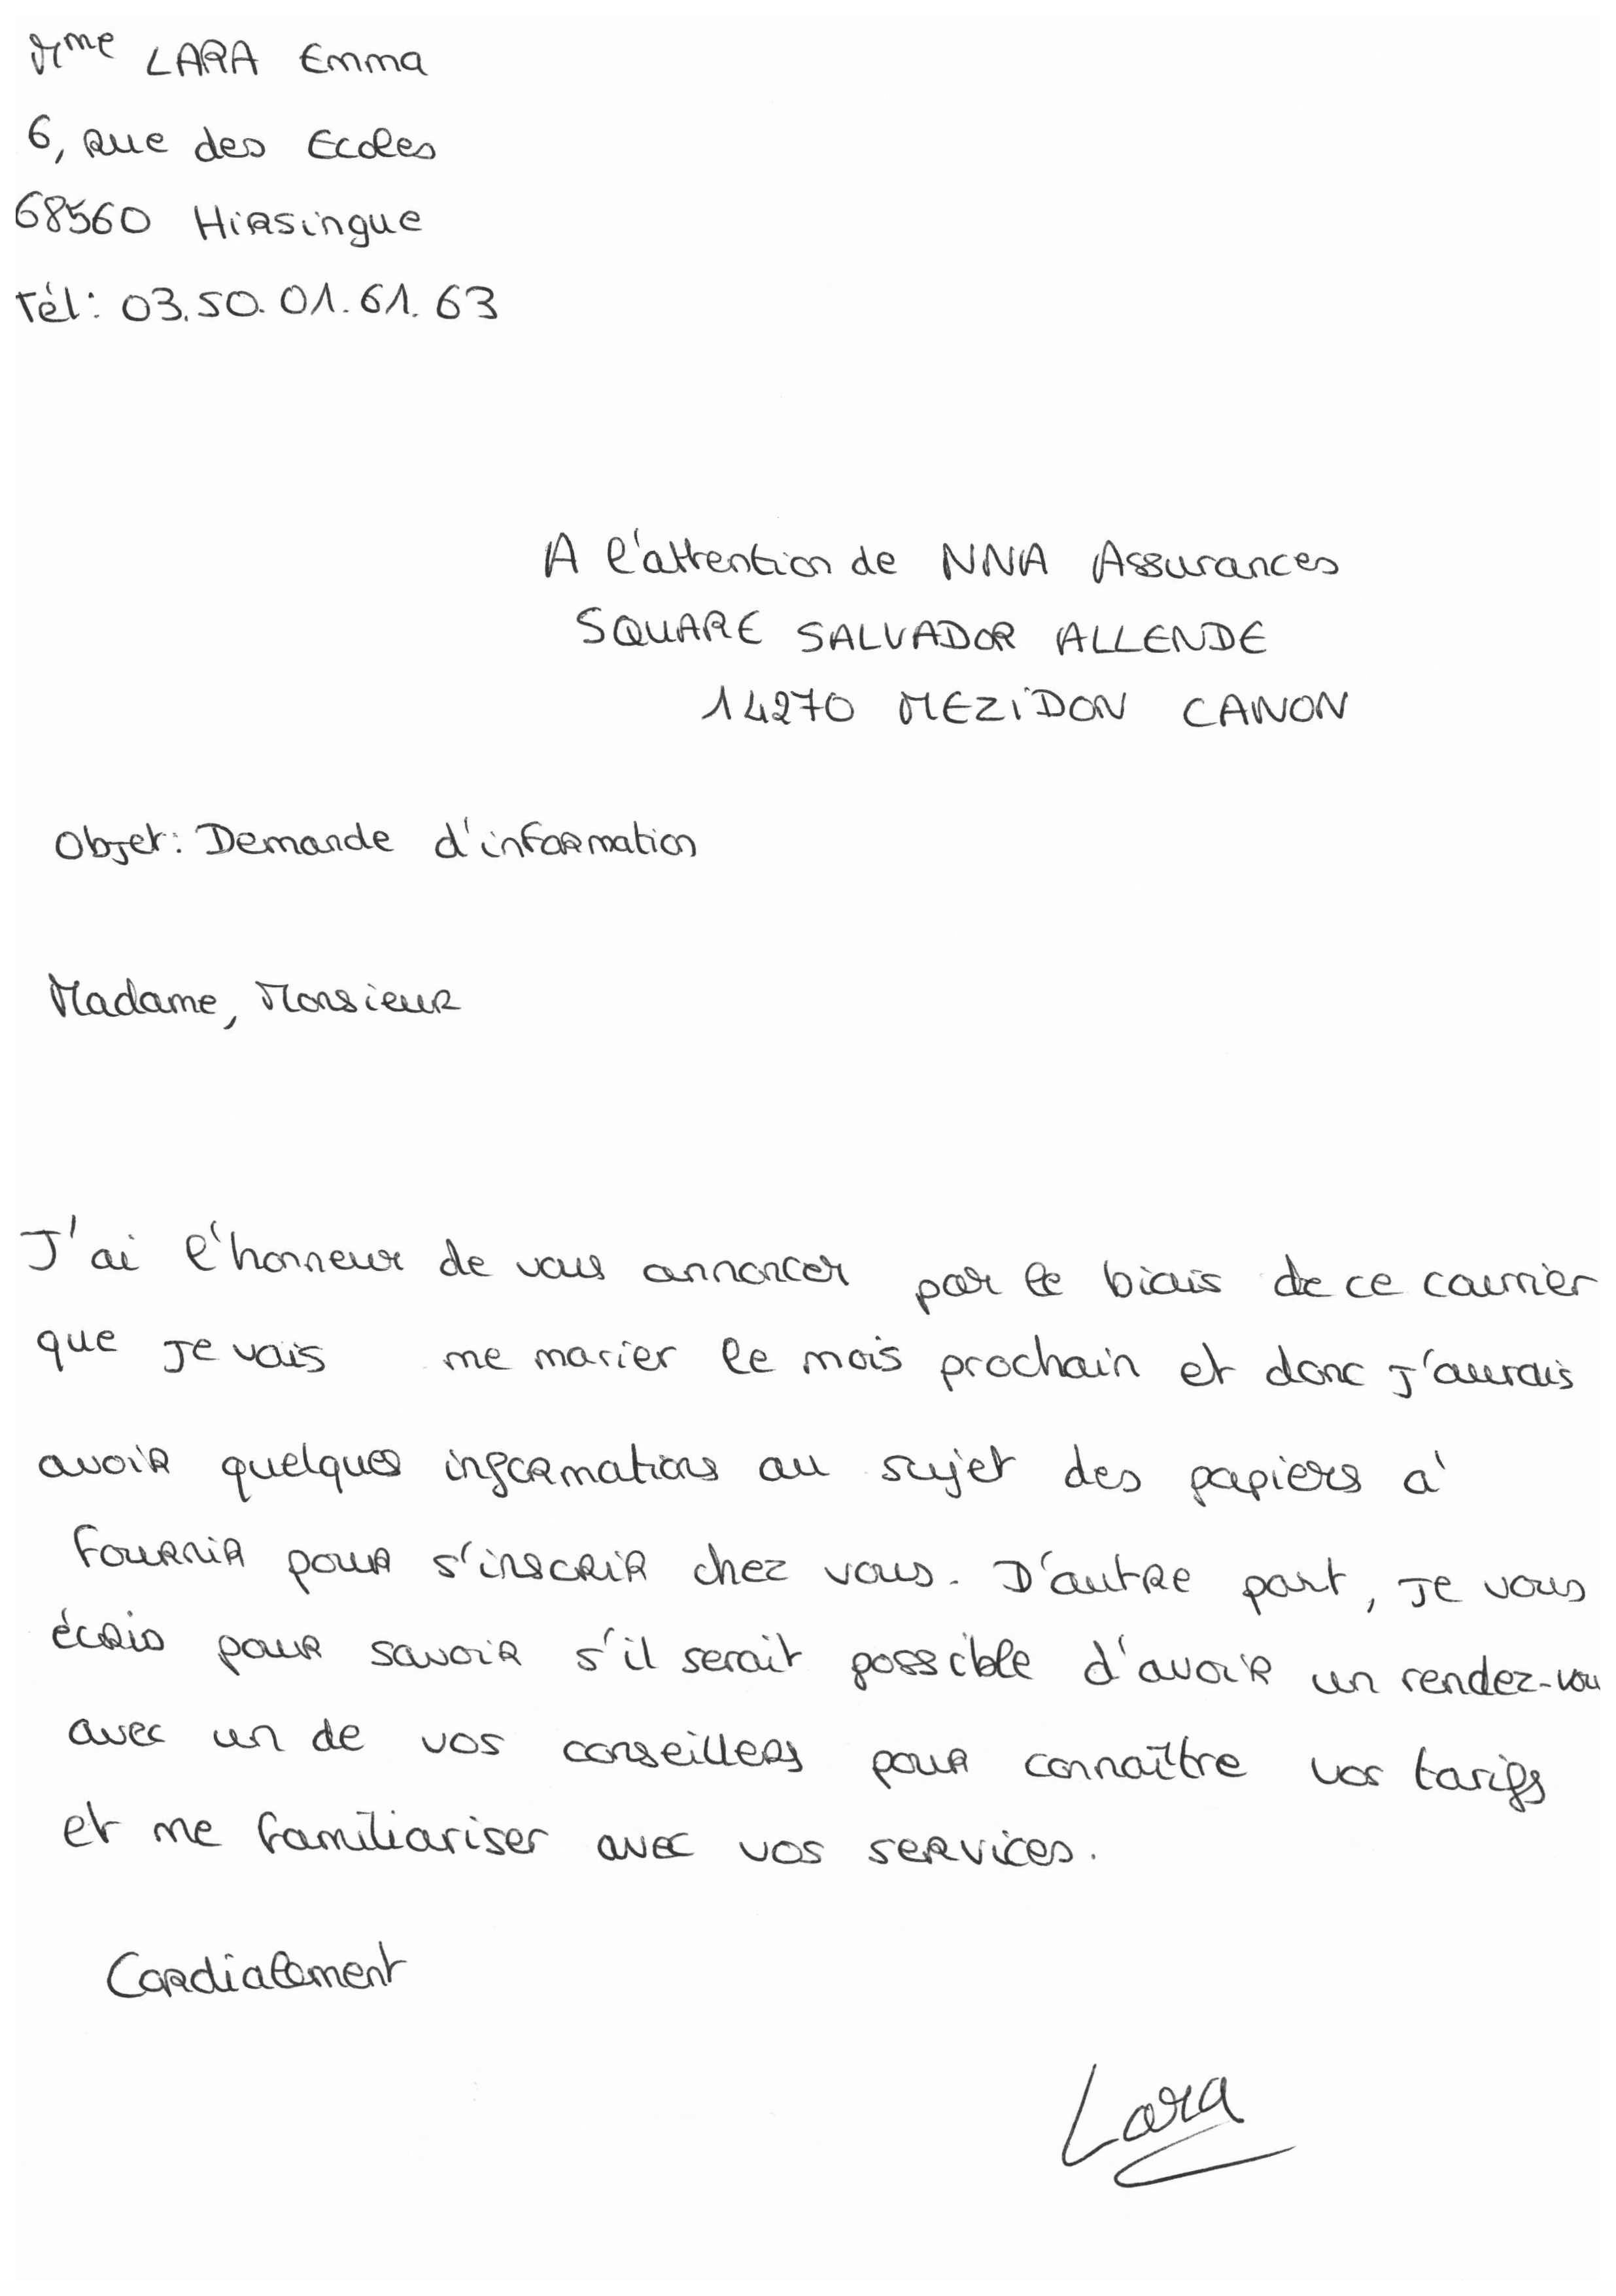 Mme LARA Emma
6, Rue des Ecoles
68560 Hirsingue
Tél: 03.50.01.61.63
A l'attention de NNA Assurances
SQUARE SALVADOR ALLENDE
14270 MEZIDON CANON
Objet: Demande d'information
Madame, Monsieur
J'ai l'honneur de vous annoncer par le biais de ce courrier
que je vais me marier le mois prochain et donc j'aurais
avoir quelques informations au sujet des papiers à
fournir pour s'inscrir chez vous. D'autre part, je vous
écris pour savoir s'il serait possible d'avoir un rendez-vou
avec un de vos conseillers pour connaître vos tarifs
et me familiariser avec vos services.
Cordialement
Lara